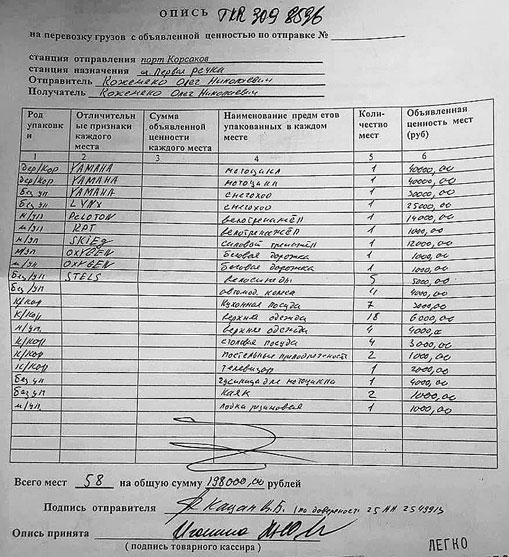 ОПИСЬ TKR 309 8596
на перевозку грузов с объявленной ценностью по отправке №
станция отправления порт Корсаков
станция назначения м. Первая речка
Отправитель Кожемеко Олег Николаевич
Получатель Кожемеко Олег Николаевич
Род упаковки | Отличительные признаки каждого места | Сумма объявленной ценности каждого места | Наименование предметов упакованных в каждом месте | Количество мест | Объявленная ценность мест (руб)
1 2 3 4 5 6
дер/кор YAMAHA мотоцикл 1 40000,00
дер/кор YAMAHA мотоцикл 1 40000,00
без уп YAMAHA снегоход 1 30000,00
без уп LYNX снегоход 1 25000,00
м/уп PELOTON велотренажёр 1 14000,00
м/уп велотренажёр 1 1000,00
м/уп SKIEG силовой тренажёр 1 12000,00
м/уп OXYGEN беговая дорожка 1 1000,00
м/уп OXYGEN беговая дорожка 1 1000,00
без/уп STELS велосипеды 5 5000,00
без/уп автомоб. колеса 4 4000,00
к/кор Кухонная посуда 7 3000,00
к/кор Верхняя одежда 18 6000,00
м/уп. верхняя одежда 4 4000,00
к/кор столовая посуда 4 3000,00
к/кор постельные принадлежности 2 1000,00
к/кор телевизор 1 2000,00
без уп гусеница для мотоцикла 1 4000,00
без уп каяк 2 1000,00
м/уп лодка резиновая 1 1000,00
Всего мест 58 на общую сумму 198000,00 рублей
Подпись отправителя Кацан В.Б. (по доверености 25 АА 2549913
Опись принята
( подпись товарного кассира )
ЛЕГКО